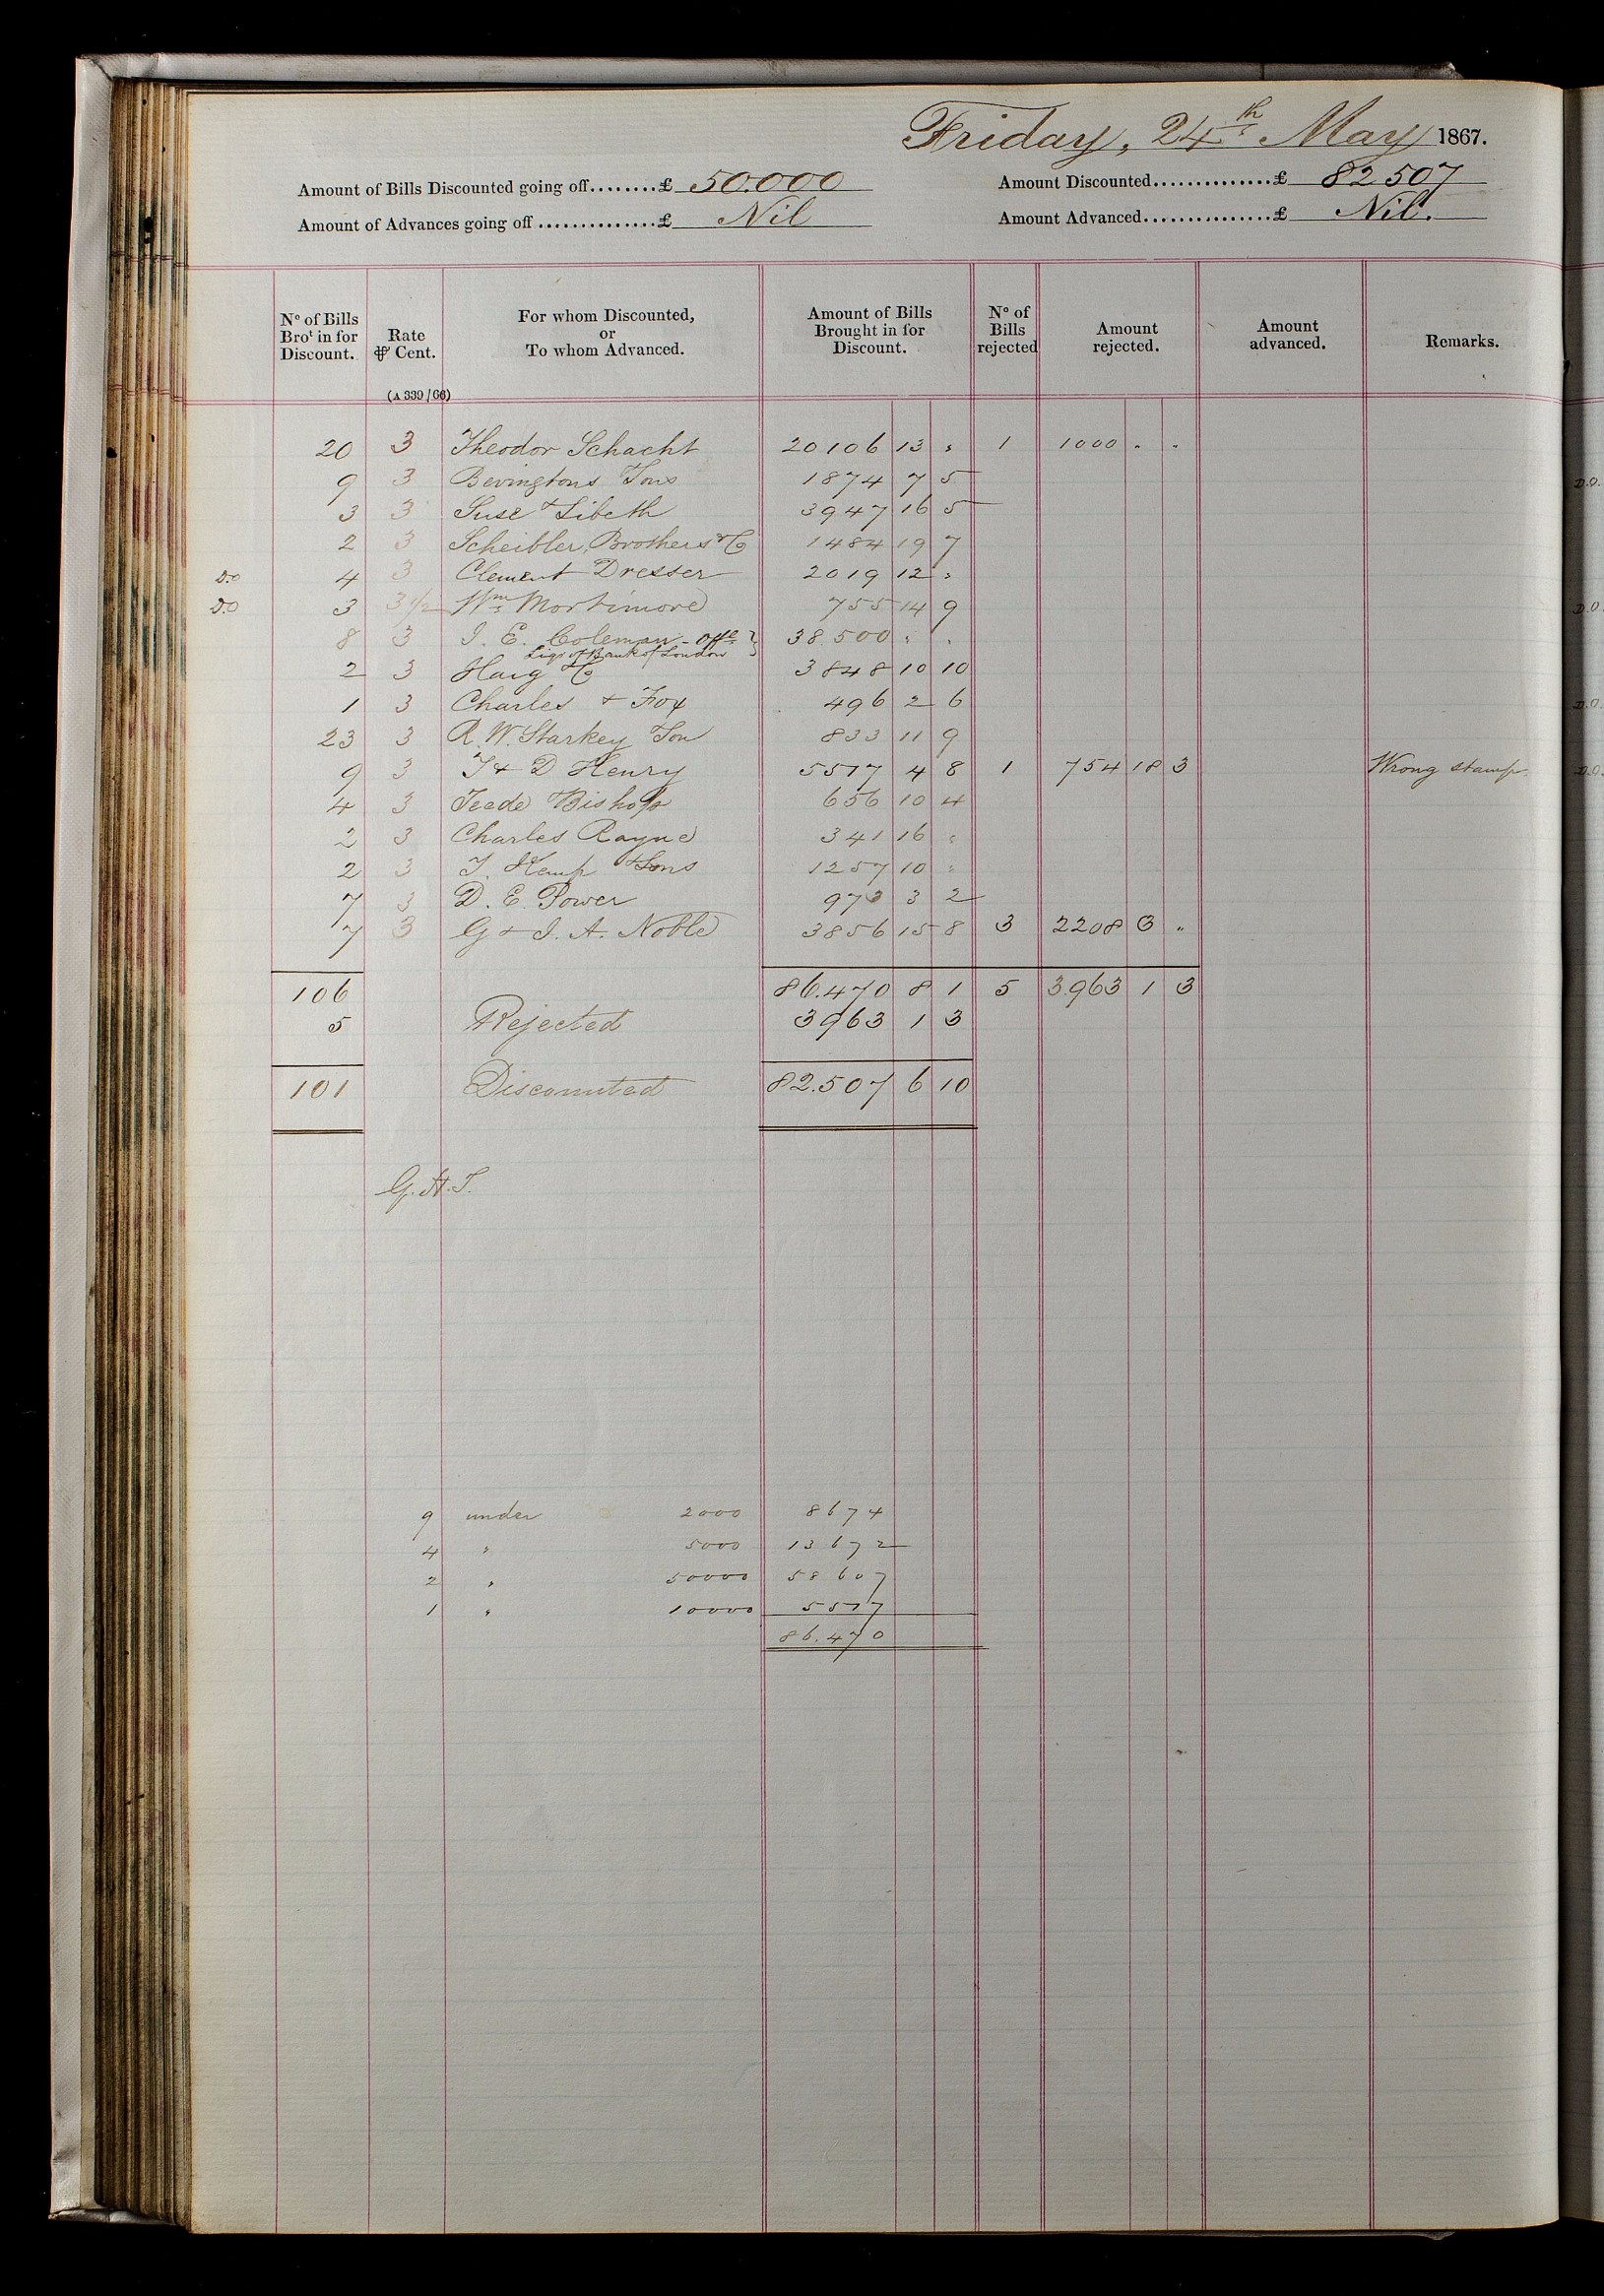 Friday, 24th May 1867.
Amount of Bills Discounted going off........£ 50.000 Amount Discounted...............£ 82507
Amount of Advances going off ..............£ Nil Amount Advanced...............£ Nil.
No of Bills Brot in for Discount. Rate ⅌ Cent. For whom Discounted, or To whom Advanced. Amount of Bills Brought in for Discount. No of Bills rejected Amount rejected. Amount advanced. Remarks.
(A 339/66)
20 3 Theodor Schacht 20106 13 " 1 1000 " "
9 3 Bevingtons & Sons 1874 7 5
3 3 Suse & Sibeth 3947 16 5
2 3 Scheibler, Brothers & Co 1484 19 7
D.O 4 3 Clement Dresser 2019 12 "
D.O 3 3 1/2 Wm Mortimore 755 14 9
8 3 J. E. Coleman - Offl 38.500 " "
Liqr of Bank of London
2 3 Haig & Co 3848 10 10
1 3 Charles & Fox 496 2 6
23 3 R. W. Starkey & Son 833 11 9
9 3 J & D Henry 5517 4 8 1 754 18 3 Wrong stamp
4 3 Teede & Bishop 656 10 4
2 3 Charles Rayne 341 16 "
2 3 T. Kemp & Sons 1257 10 "
7 3 D. E. Power 973 3 2
7 3 G & J. A. Noble 3856 15 8 3 2208 3 "
106 86.470 8 1 5 3.963 1 3
5 Rejected 3963 1 3
101 Discounted 82.507 6 10
G. H. T.
9 under 2000 8674
4 " 5000 13672
2 " 50000 58607
1 " 10000 5517
86.470
D.O.
D.O.
D.O.
D.O.